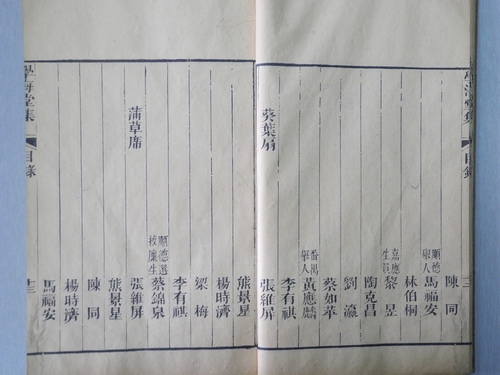 學海堂集
目錄
陳同
順德舉人馬福安
林伯桐
嘉應生員黎昱
陶克昌
劉瀛
蔡如苹
番禺舉人黃應麟
李有祺
葵葉扇
張維屏
熊景星
楊時濟
梁梅
李有祺
順德選校廩生蔡錦泉
蒲草席
張維屏
熊景星
陳同
楊時濟
馬福安
學海堂集
目錄